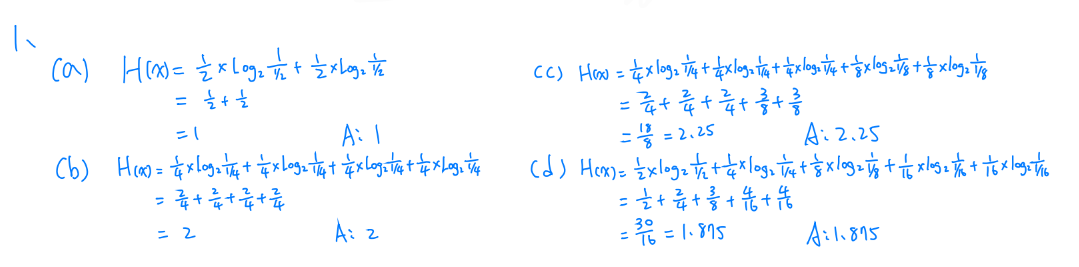 1、
(a) H(x) = 1/2 × log₂ 1/(1/2) + 1/2 × log₂ 1/(1/2)
= 1/2 + 1/2
= 1 A: 1
(b) H(x) = 1/4 × log₂ 1/(1/4) + 1/4 × log₂ 1/(1/4) + 1/4 × log₂ 1/(1/4) + 1/4 × log₂ 1/(1/4)
= 2/4 + 2/4 + 2/4 + 2/4
= 2 A: 2
(c) H(x) = 1/4 × log₂ 1/(1/4) + 1/4 × log₂ 1/(1/4) + 1/4 × log₂ 1/(1/4) + 1/8 × log₂ 1/(1/8) + 1/8 × log₂ 1/(1/8)
= 2/4 + 2/4 + 2/4 + 3/8 + 3/8
= 18/8 = 2.25 A: 2.25
(d) H(x) = 1/2 × log₂ 1/(1/2) + 1/4 × log₂ 1/(1/4) + 1/8 × log₂ 1/(1/8) + 1/16 × log₂ 1/(1/16) + 1/16 × log₂ 1/(1/16)
= 1/2 + 2/4 + 3/8 + 4/16 + 4/16
= 30/16 = 1.875 A: 1.875